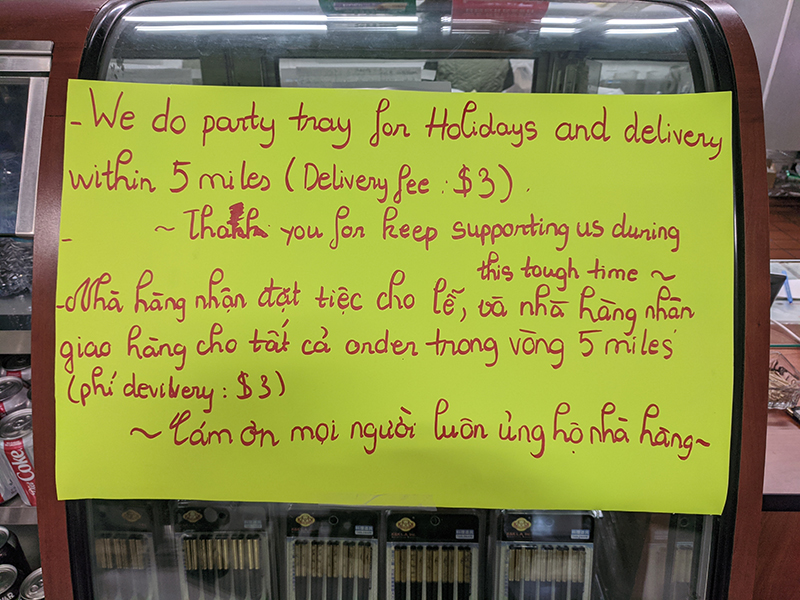 - We do party tray for Holidays and delivery
within 5 miles (Delivery fee : $3) .
- ~ Thank you for keep supporting us during
this tough time ~
- Nhà hàng nhận đặt tiệc cho lễ, và nhà hàng nhận
giao hàng cho tất cả order trong vòng 5 miles
(phí devilvery : $3)
~ Cám ơn mọi người luôn ủng hộ nhà hàng ~
Coke